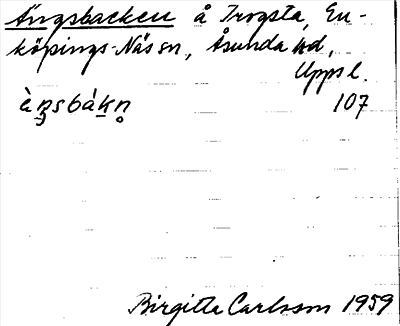 Ängsbacken å Trogsta, En-
köpings-Näs sn, Åsunda hd,
Uppsl.
ànsbákn 107
Birgitta Carlsson 1959